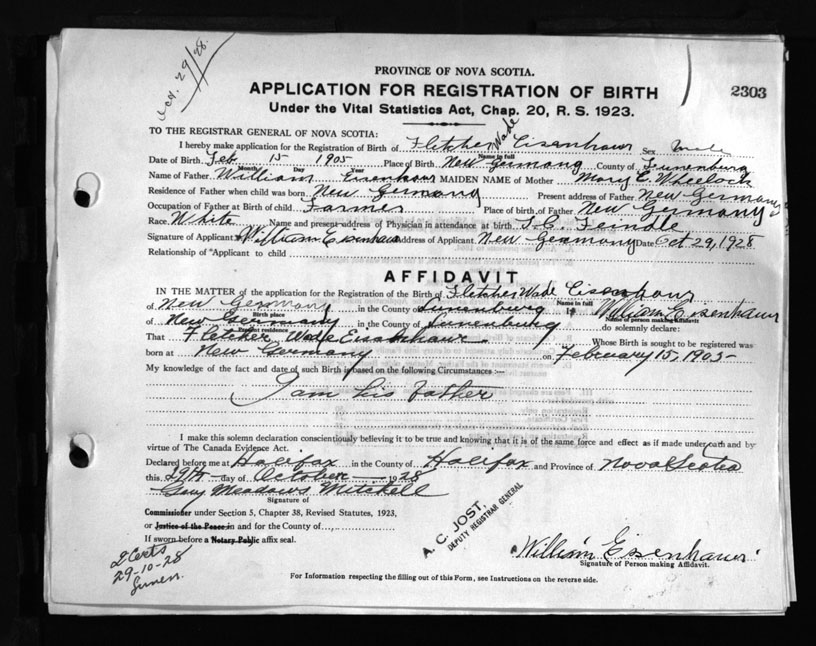 Oct. 29/28.
PROVINCE OF NOVA SCOTIA.
APPLICATION FOR REGISTRATION OF BIRTH
2303
Under the Vital Statistics Act, Chap. 20, R. S. 1923.
TO THE REGISTRAR GENERAL OF NOVA SCOTIA:
I hereby make application for the Registration of Birth of Fletcher Wade Eisenhaur Sex male
Name in full
Date of Birth Feb 15 1905 Place of Birth New Germany County of Lunenburg
Month Day Year
Name of Father William Eisenhaur MAIDEN NAME of Mother Mary E. Wheelock
Residence of Father when child was born New Germany Present address of Father New Germany
Occupation of Father at Birth of child Farmer Place of birth of Father New Germany
Race White Name and present address of Physician in attendance at birth Feindle
Signature of Applicant William Eisenhaur Address of Applicant New Germany Date Oct 29, 1928
Relationship of Applicant to child
AFFIDAVIT
IN THE MATTER of the application for the Registration of the Birth of Fletcher Wade Eisenhaur
Name in full
of New Germany in the County of Lunenburg I William Eisenhaur
Birth place Name of person making Affidavit
of New Germany in the County of Lunenburg do solemnly declare:
Present residence
That Fletcher Wade Eisenhaur Whose Birth is sought to be registered was
born at New Germany on February 15, 1905
My knowledge of the fact and date of such Birth is based on the following Circumstances:—
I am his father
I make this solemn declaration conscientiously believing it to be true and knowing that it is of the same force and effect as if made under oath and by
virtue of The Canada Evidence Act.
Declared before me at Halifax in the County of Halifax and Province of Nova Scotia
this 29th day of October 1928
Meadows Mitchell
Signature of
Commissioner under Section 5, Chapter 38, Revised Statutes, 1923,
or Justice of the Peace in and for the County of
If sworn before a Notary Public affix seal.
A. C. JOST
DEPUTY REGISTRAR GENERAL
2 Certs
29-10-28
William Eisenhaur
Signature of Person making Affidavit.
For Information respecting the filling out of this Form, see Instructions on the reverse side.